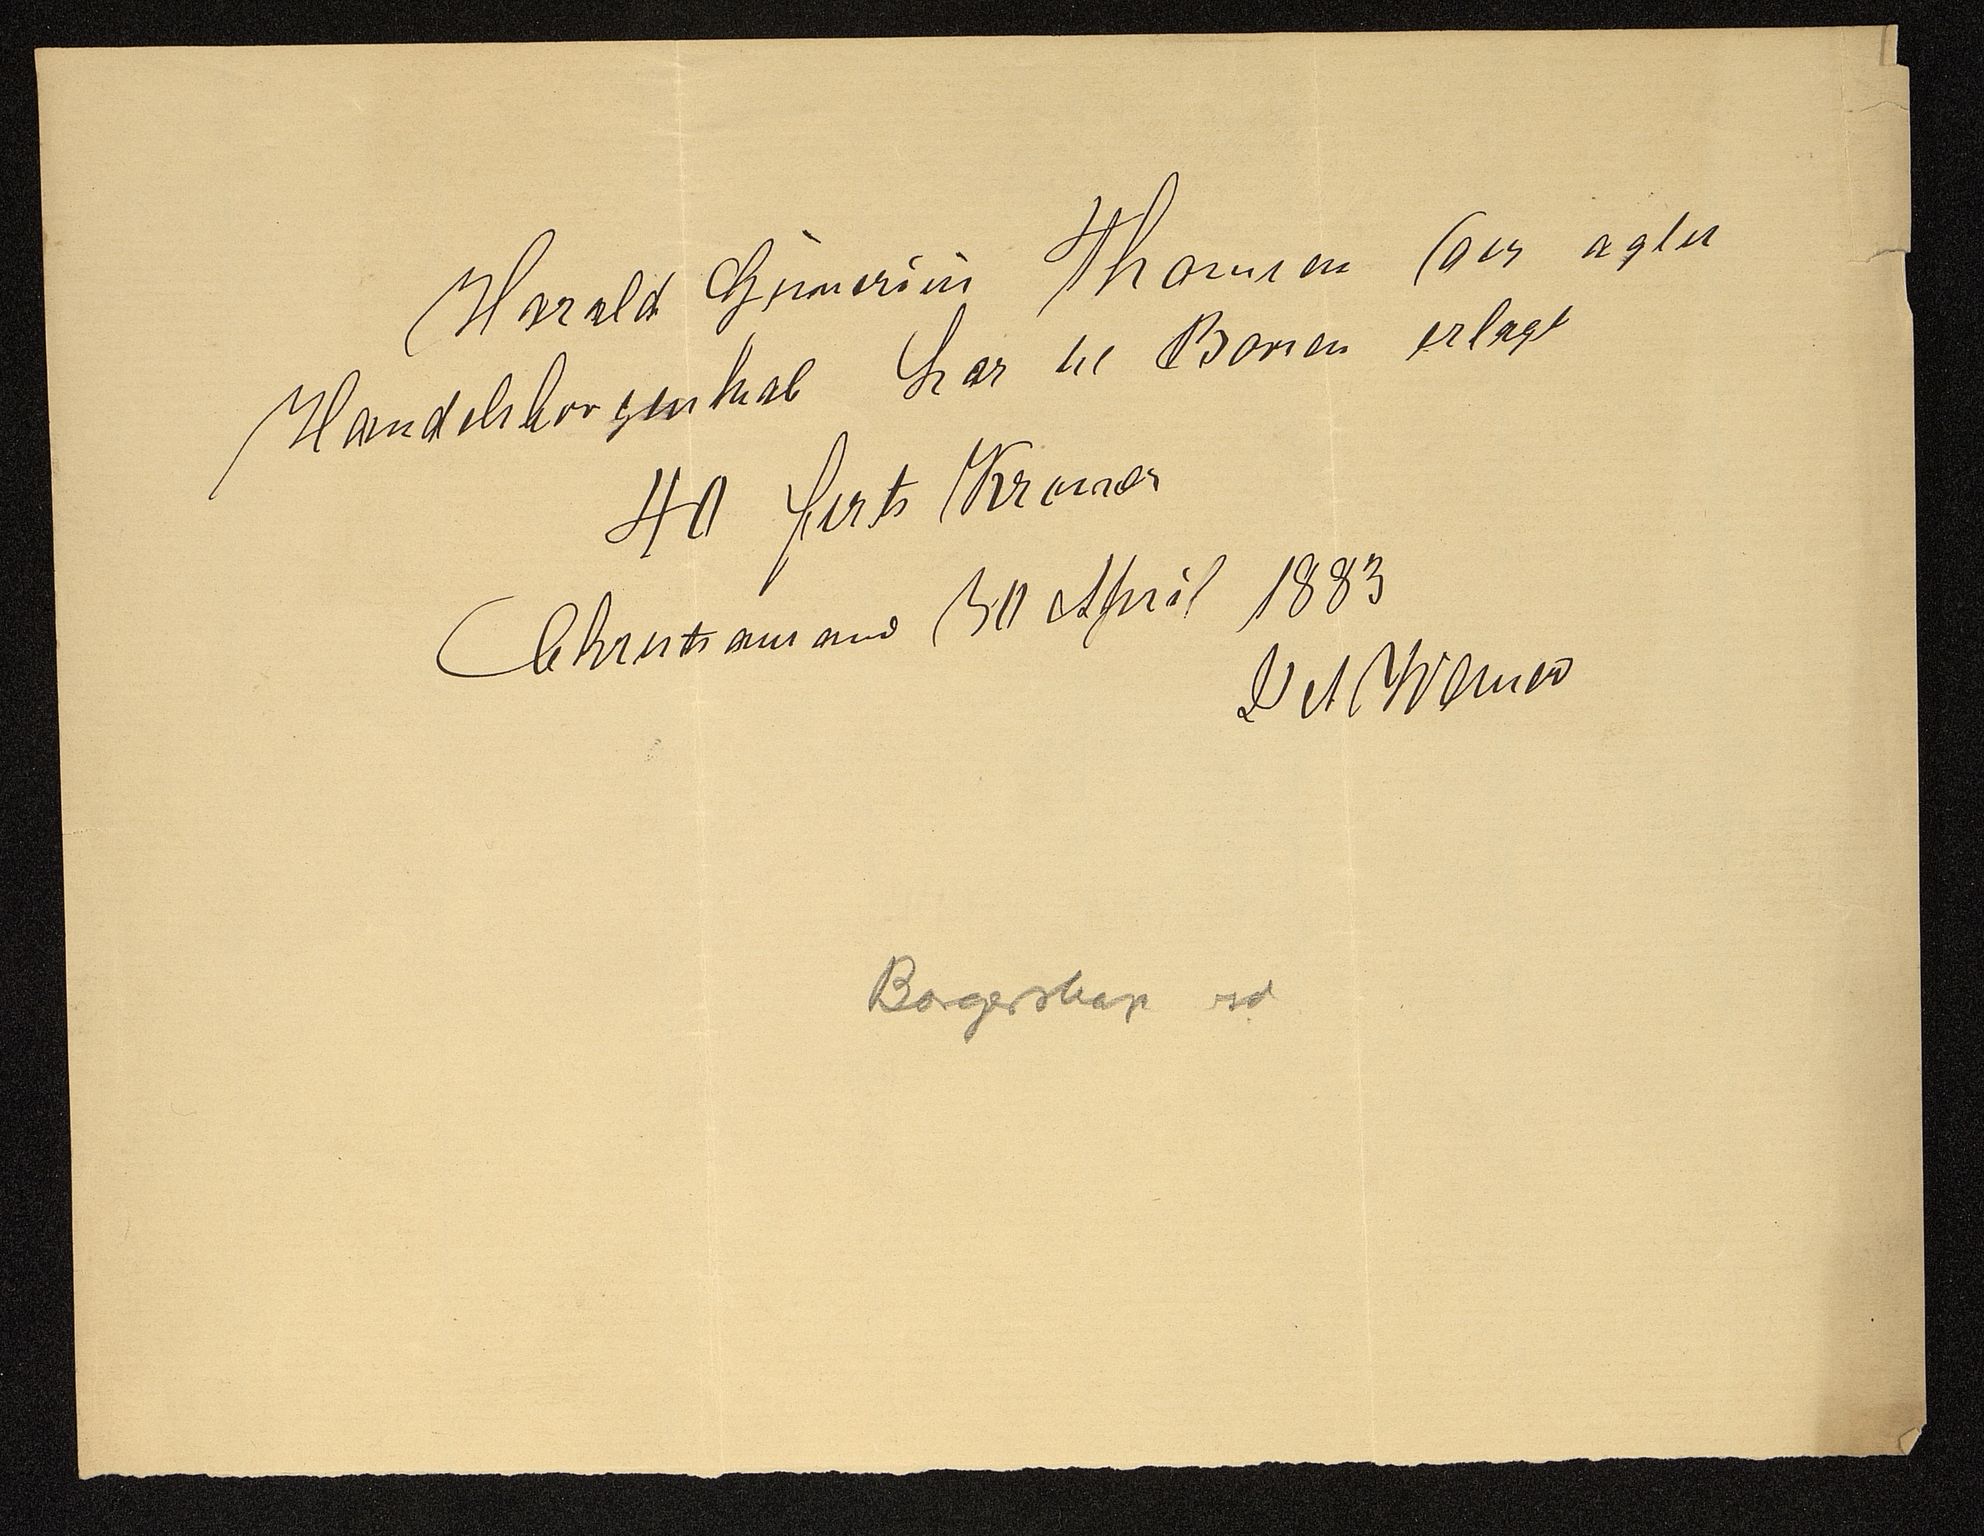 Harald Thomsen der agter
Handelsborgerskab har til Børsen erlagt
40 firti Kroner
Christianssand 30 April 1883
Borgerskap